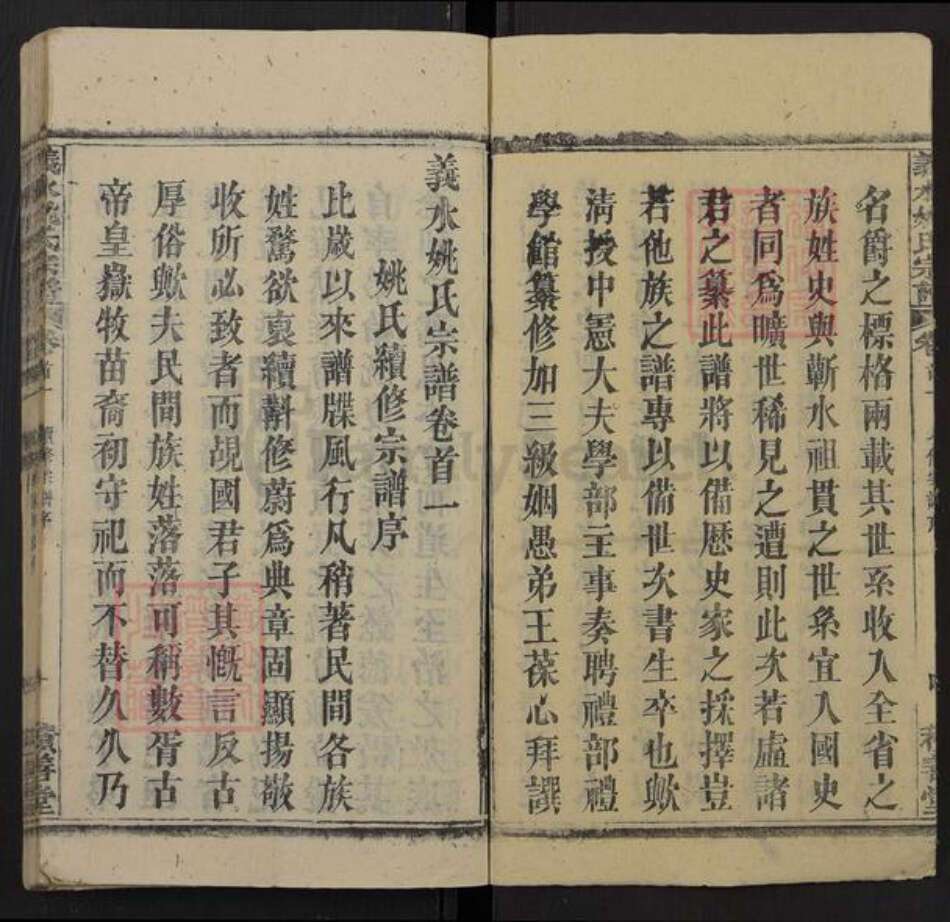 名爵之標格兩載其世系收入全省之
族姓史與蘄水祖貫之世系宜入國史
者同爲曠世稀見之遭則此次若虛諸
君之纂此譜將以備歷史家之採擇豈
若他族之譜專以備世次書生卒也歟
清授中憲大夫學部主事奏聘禮部禮
學館纂修加三級姻愚弟王葆心拜譔
義水姚氏宗譜卷首一
姚氏續修宗譜序
比歲以來譜牒風行凡稍著民間各族
姓騖欲裒續斠修蔚爲典章固顯揚敬
收所必致者而覘國君子其慨言反古
厚俗歟夫民間族姓落落可稱數胥古
帝皇嶽牧苗裔初守祀而不替久久乃
義水姚氏宗譜 卷首一 續修宗譜序
積善堂